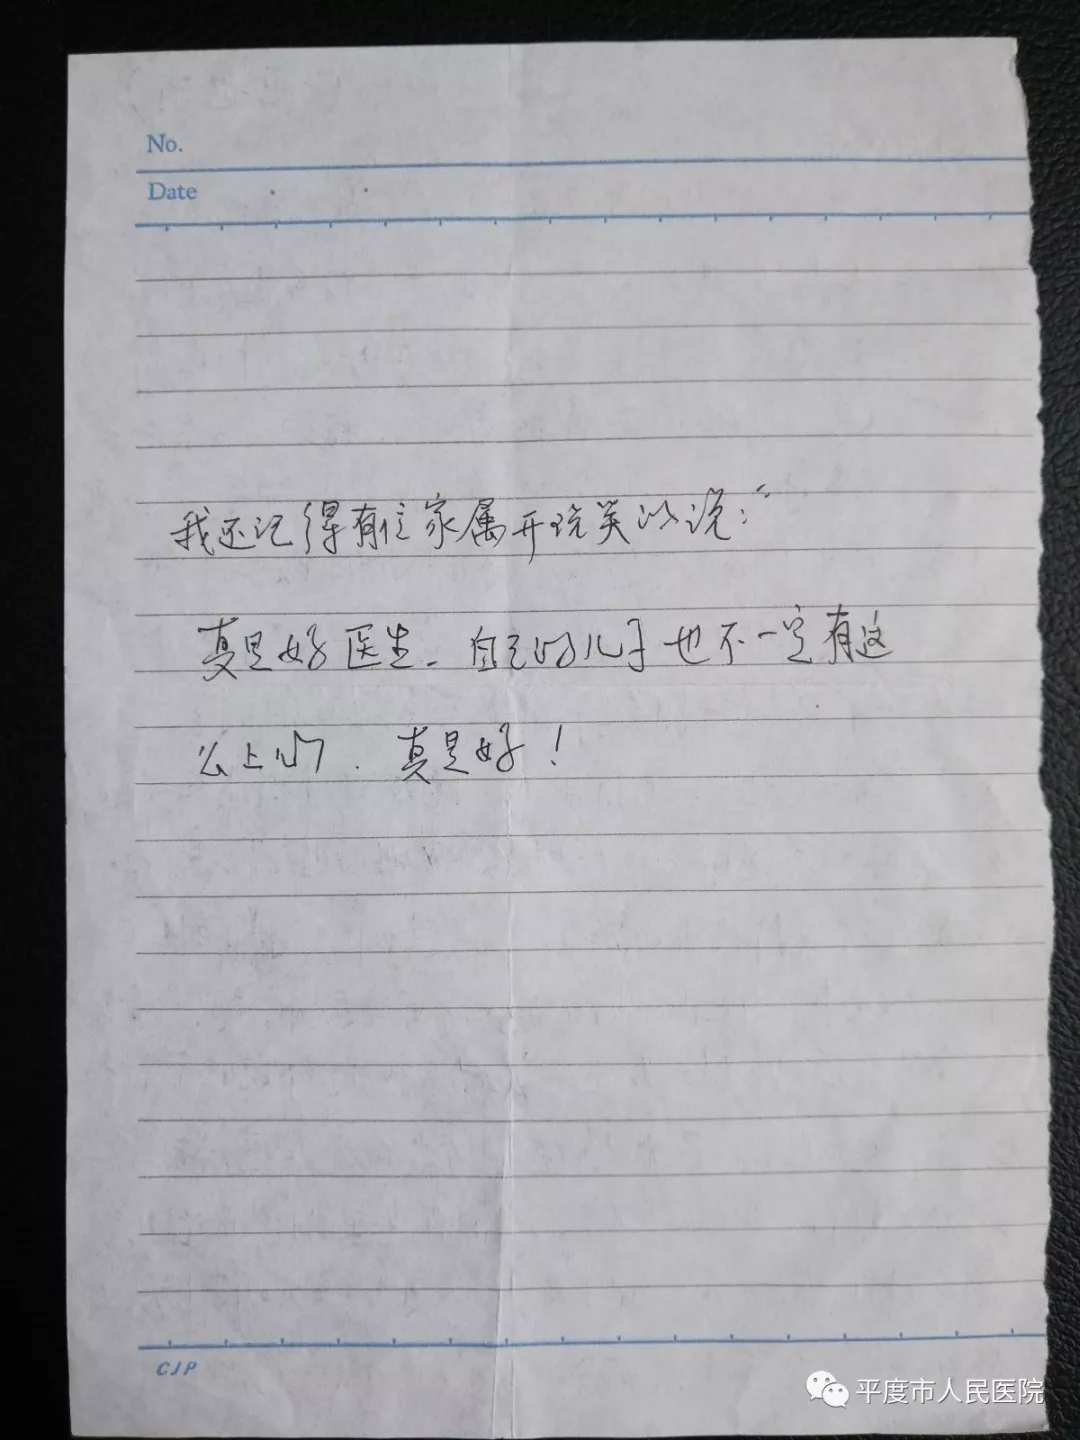 No.
Date
我还记得有位家属开玩笑的说：“
真是好医生。自己的儿子也不一定有这
么上心，真是好！
CJP
平度市人民医院